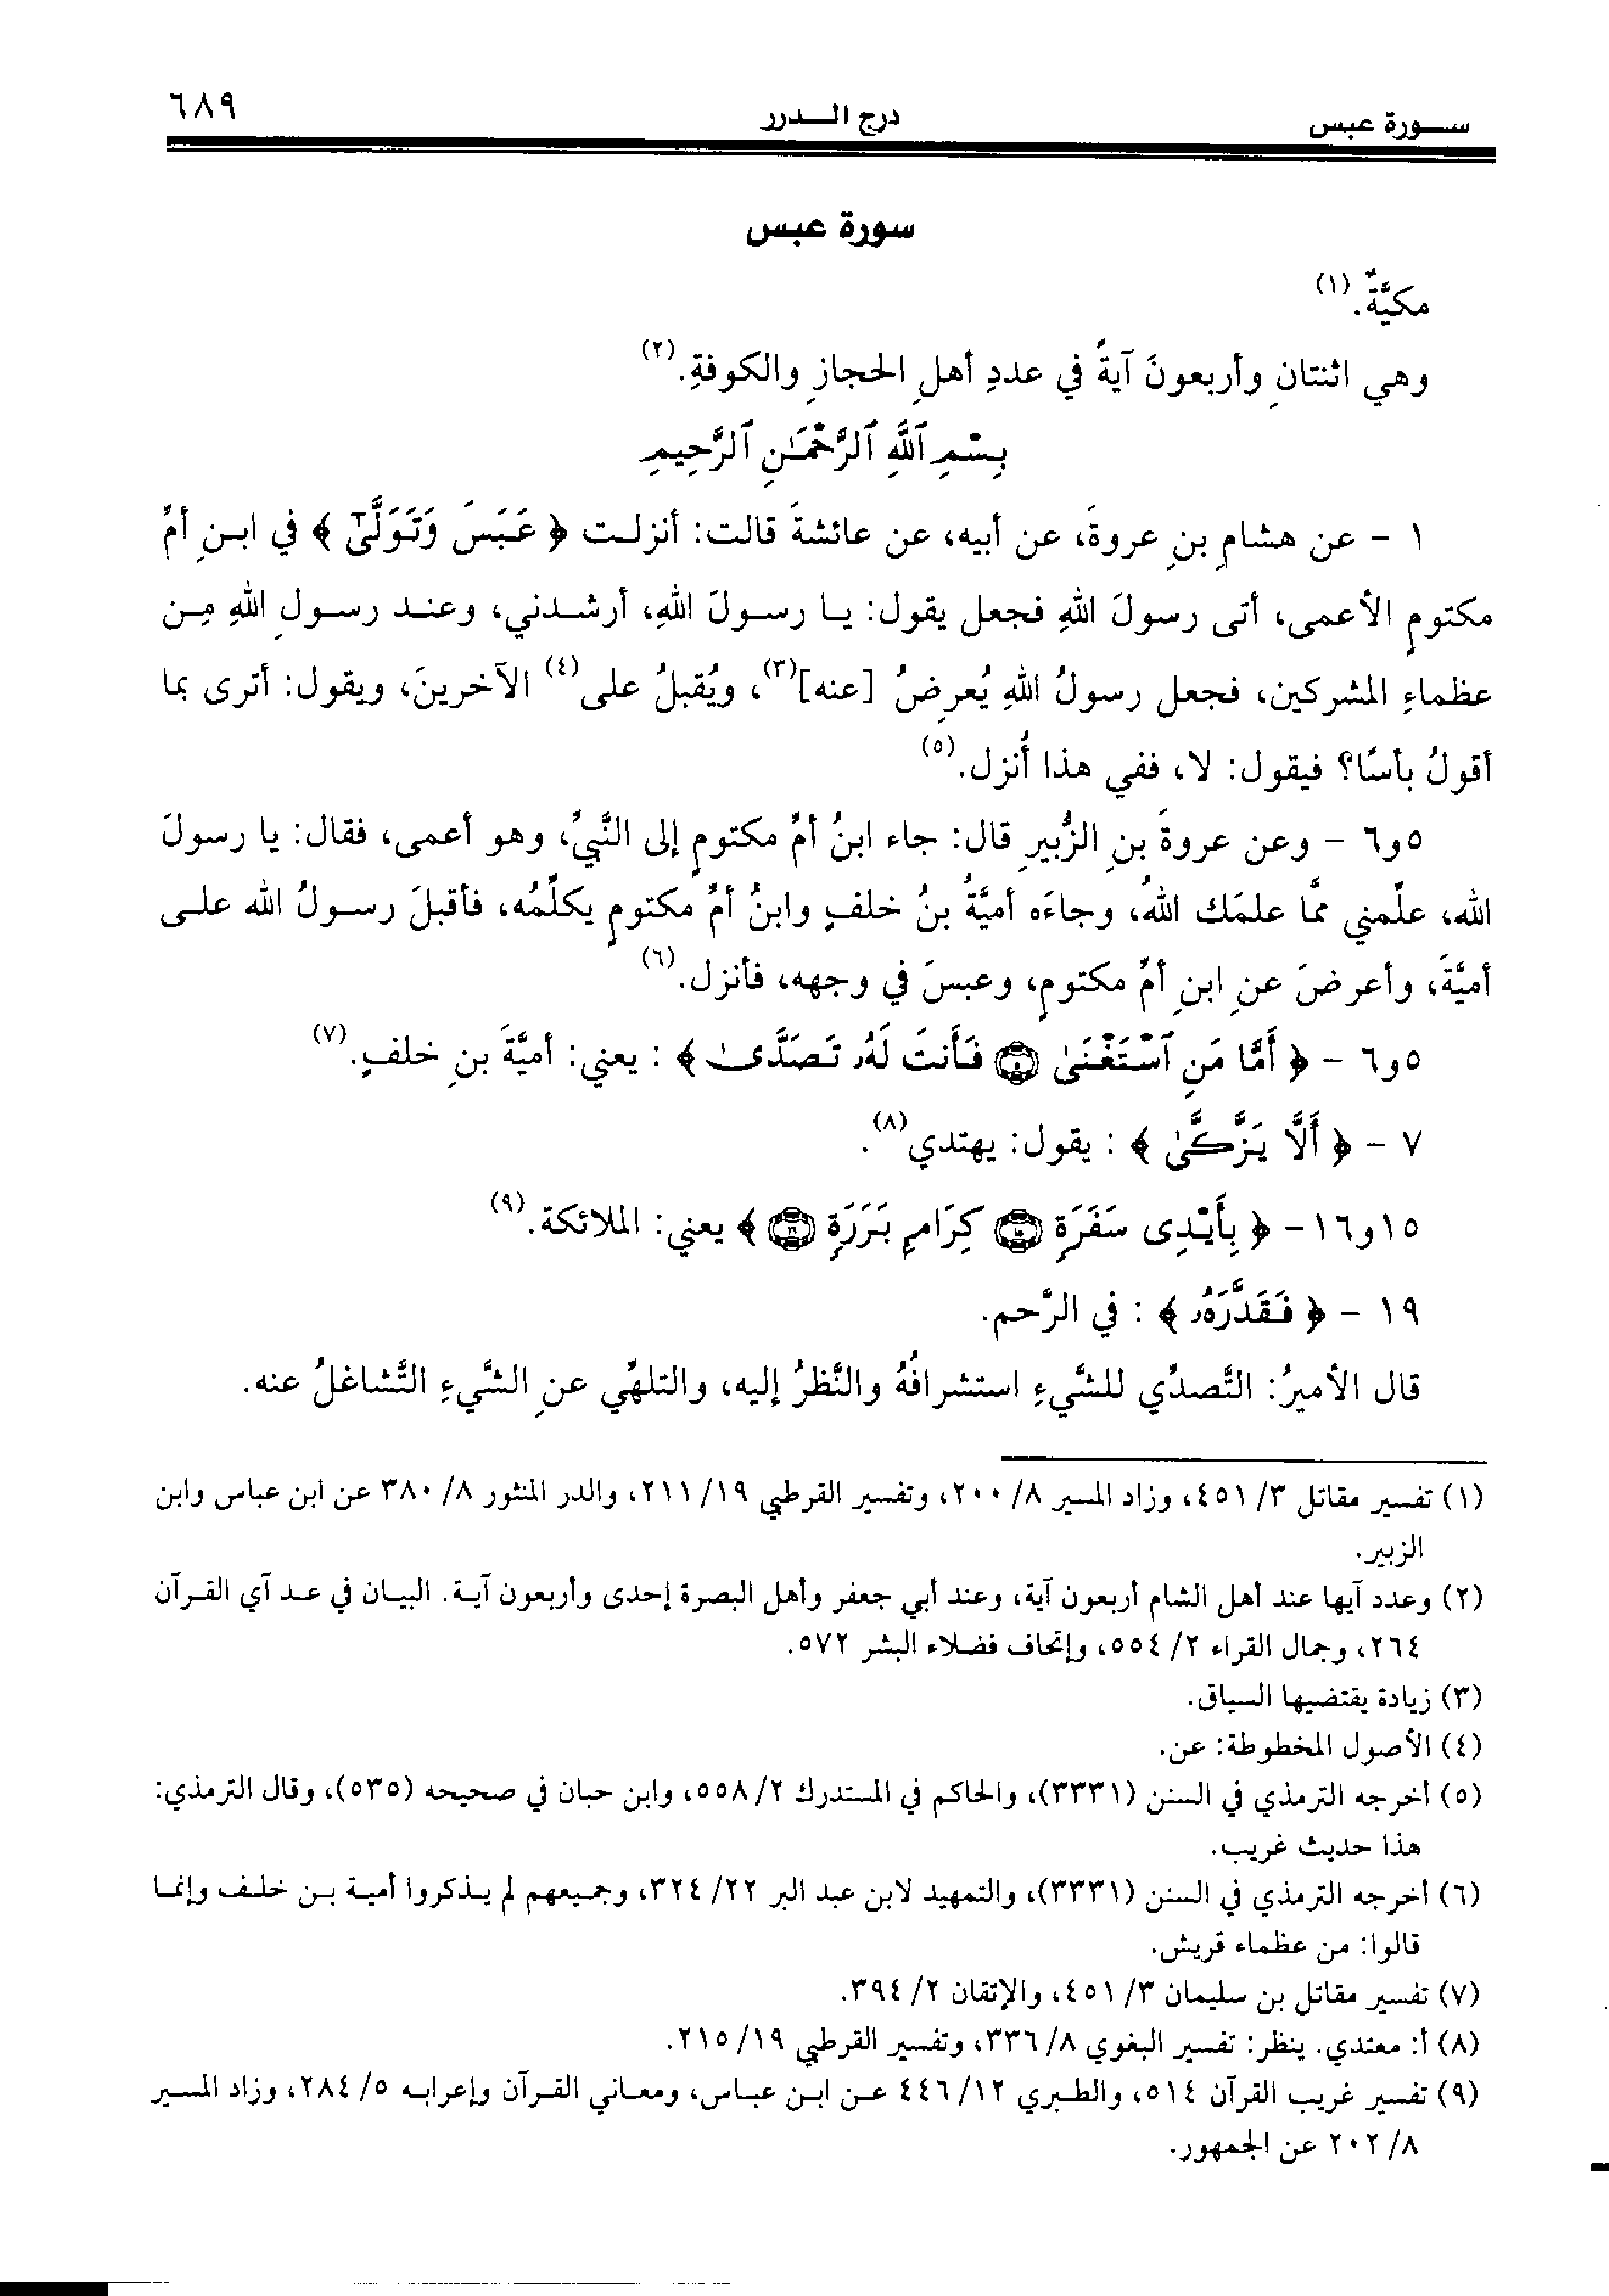 سورة عبس درج الدرر ٦٨٩
سورة عبس
مكيَّةٌ.(١)
وهي اثنتانِ وأربعونَ آيةً في عددِ أهلِ الحجازِ والكوفةِ.(٢)
بِسْمِ ٱللَّهِ ٱلرَّحْمَٰنِ ٱلرَّحِيمِ
١ - عن هشامِ بنِ عروةَ، عن أبيه، عن عائشةَ قالت: أنزلت ﴿ عَبَسَ وَتَوَلَّىٰٓ ﴾ في ابنِ أمِّ
مكتومٍ الأعمى، أتى رسولَ اللهِ فجعل يقول: يا رسولَ اللهِ، أرشدني، وعند رسولِ اللهِ مِن
عظماءِ المشركين، فجعل رسولُ اللهِ يُعرِضُ [عنه](٣)، ويُقبلُ على(٤) الآخرينَ، ويقول: أترى بما
أقولُ بأسًا؟ فيقول: لا، ففي هذا أُنزل.(٥)
٥و٦ - وعن عروةَ بنِ الزُّبيرِ قال: جاء ابنُ أمِّ مكتومٍ إلى النَّبيِّ، وهو أعمى، فقال: يا رسولَ
الله، علّمني ممَّا علمَك اللهُ، وجاءَه أميَّةُ بنُ خلفٍ وابنُ أمِّ مكتومٍ يكلِّمُه، فأقبلَ رسولُ الله على
أميَّةَ، وأعرضَ عنِ ابنِ أمِّ مكتومٍ، وعبسَ في وجهه، فأنزل.(٦)
٥و٦ - ﴿ أَمَّا مَنِ ٱسْتَغْنَىٰ ۝٥ فَأَنتَ لَهُۥ تَصَدَّىٰ ﴾ : يعني: أميَّةَ بنِ خلفٍ.(٧)
٧ - ﴿ أَلَّا يَزَّكَّىٰ ﴾ : يقول: يهتدي(٨).
١٥و١٦- ﴿ بِأَيْدِى سَفَرَةٍ ۝١٥ كِرَامٍ بَرَرَةٍ ۝١٦ ﴾ يعني: الملائكة.(٩)
١٩ - ﴿ فَقَدَّرَهُۥ ﴾ : في الرَّحم.
قال الأميرُ: التَّصدِّي للشَّيءِ استشرافُهُ والنَّظرُ إليه، والتلهِّي عنِ الشَّيءِ التَّشاغلُ عنه.
(١) تفسير مقاتل ٣/ ٤٥١، وزاد المسير ٨/ ٢٠٠، وتفسير القرطبي ١٩/ ٢١١، والدر المنثور ٨/ ٣٨٠ عن ابن عباس وابن
الزبير.
(٢) وعدد آيها عند أهل الشام أربعون آية، وعند أبي جعفر وأهل البصرة إحدى وأربعون آية. البيان في عد آي القرآن
٢٦٤، وجمال القراء ٢/ ٥٥٤، وإتحاف فضلاء البشر ٥٧٢.
(٣) زيادة يقتضيها السياق.
(٤) الأصول المخطوطة: عن.
(٥) أخرجه الترمذي في السنن (٣٣٣١)، والحاكم في المستدرك ٢/ ٥٥٨، وابن حبان في صحيحه (٥٣٥)، وقال الترمذي:
هذا حديث غريب.
(٦) أخرجه الترمذي في السنن (٣٣٣١)، والتمهيد لابن عبد البر ٢٢/ ٣٢٤، وجميعهم لم يذكروا أمية بن خلف وإنما
قالوا: من عظماء قريش.
(٧) تفسير مقاتل بن سليمان ٣/ ٤٥١، والإتقان ٢/ ٣٩٤.
(٨) أ: معتدي. ينظر: تفسير البغوي ٨/ ٣٣٦، وتفسير القرطبي ١٩/ ٢١٥.
(٩) تفسير غريب القرآن ٥١٤، والطبري ١٢/ ٤٤٦ عن ابن عباس، ومعاني القرآن وإعرابه ٥/ ٢٨٤، وزاد المسير
٨/ ٢٠٢ عن الجمهور.